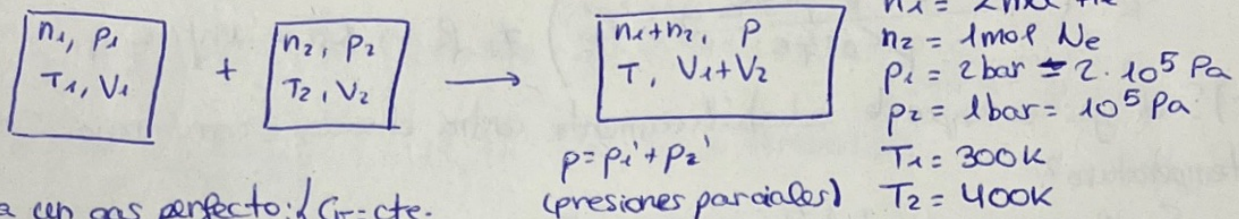 n₁, p₁
T₁, V₁
+
n₂, p₂
T₂, V₂
n₁+n₂, P
T, V₁+V₂
p=p₁'+p₂'
(presiones parciales)
n₂ = 1mol Ne
p₁ = 2bar = 2·10⁵ Pa
p₂ = 1bar = 10⁵ Pa
T₁ = 300K
T₂ = 400K
gas perfecto: